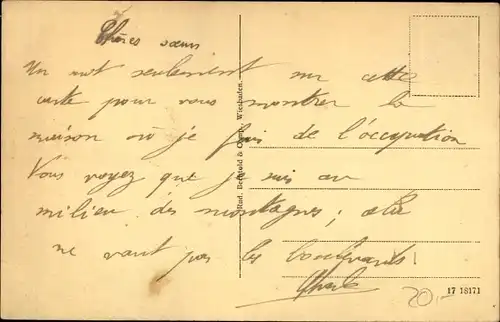 Chères sœurs
Un mot seulement sur cette
carte pour vous montrer la
maison où je fais de l'occupation
Vous voyez que je suis au
milieu des montagnes; cela
ne vaut pas les boulevards!
Charles
Rud. Bechtold & Comp., Wiesbaden.
20.-
17 18171